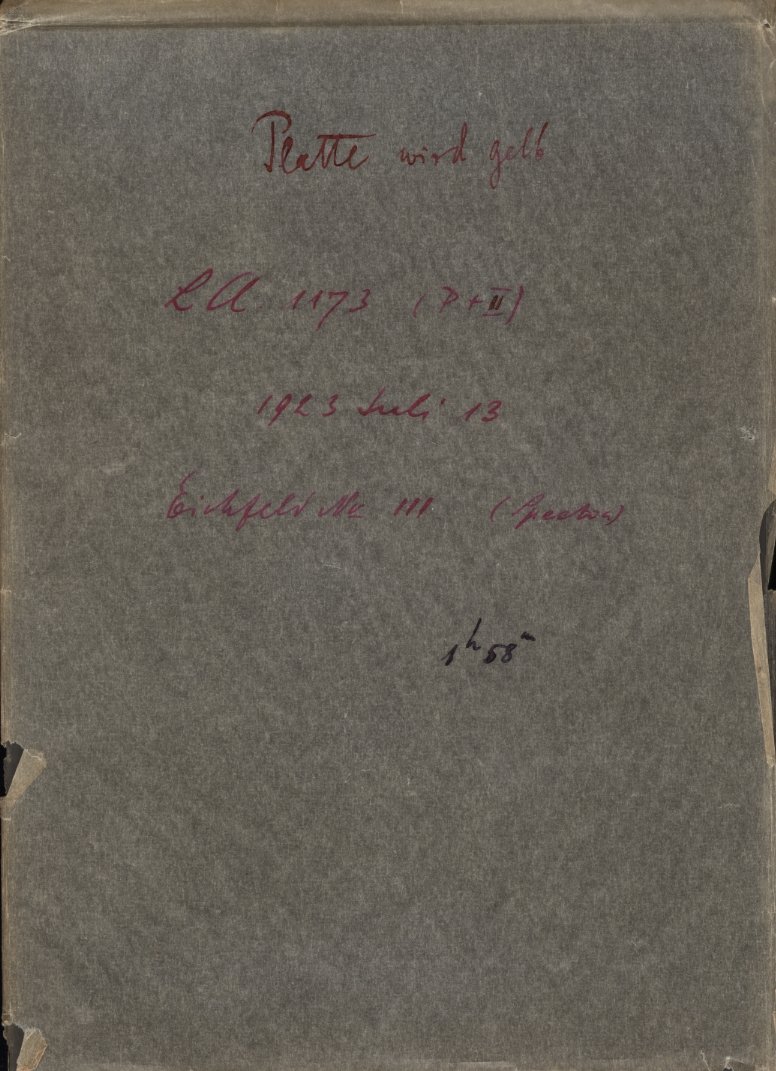 Platte wird gelb
LA 1173 (P+II)
1923 Juli 13
Eichfeld No III (Spectra)
1h 58m